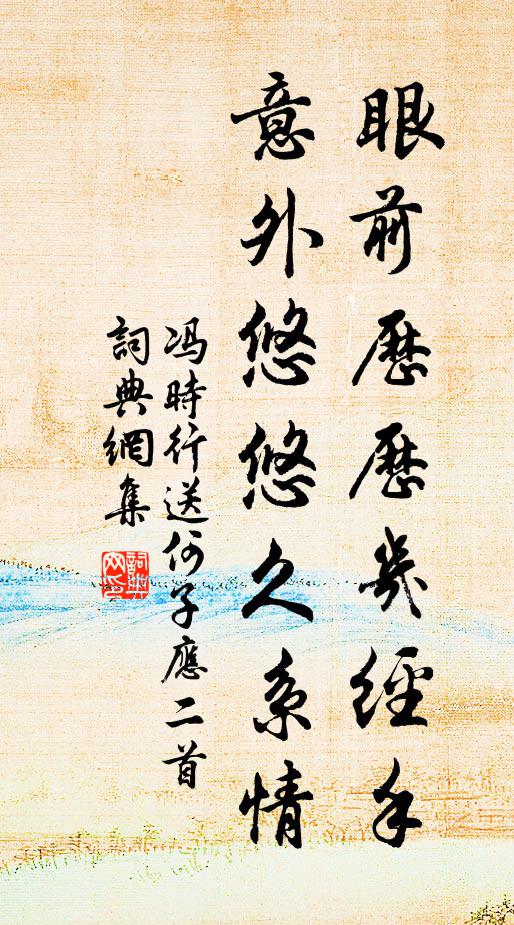 眼前歷歷幾經手
意外悠悠久系情
冯時行送何子應二首
詞典網集